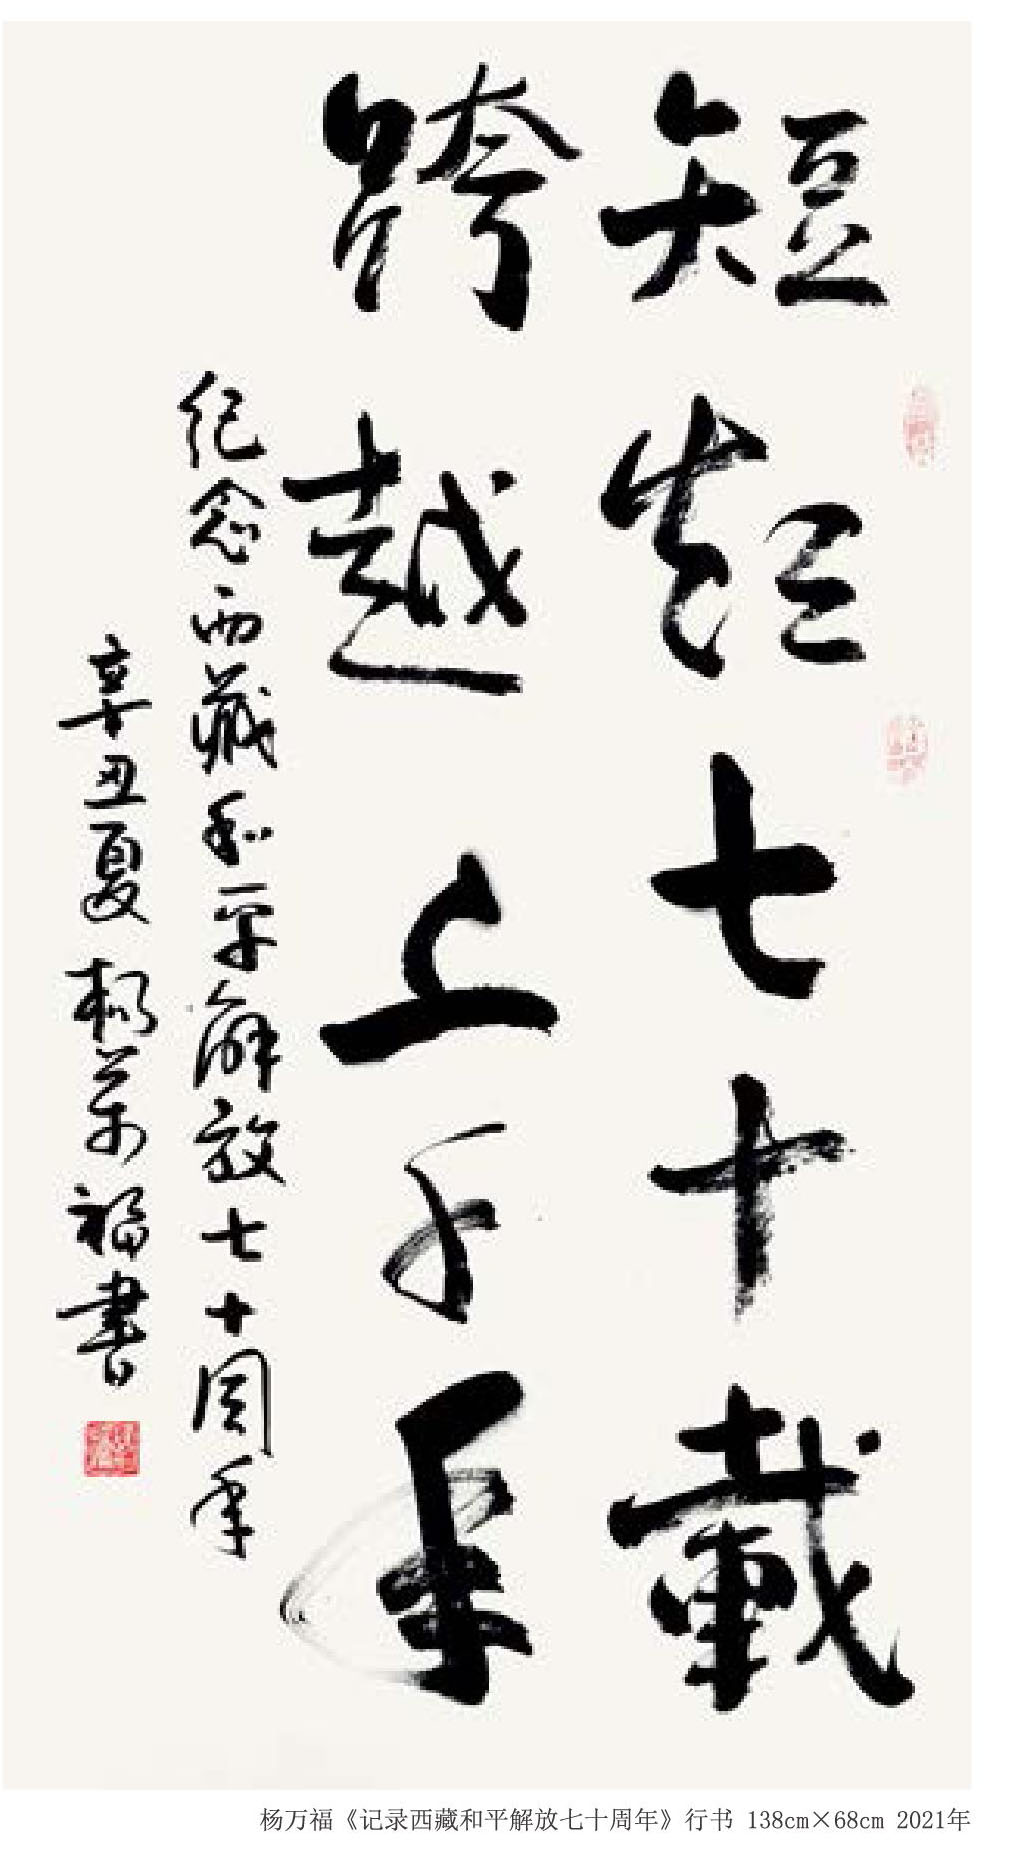 短短七十載
跨越上千年
纪念西藏和平解放七十周年
辛丑夏杨萬福書
杨万福《记录西藏和平解放七十周年》行书 138cm×68cm 2021年